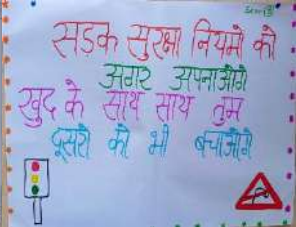 सड़क सुरक्षा नियमो को
अगर अपनाओगे
खुद के साथ साथ तुम
दूसरो को भी बचाओगे